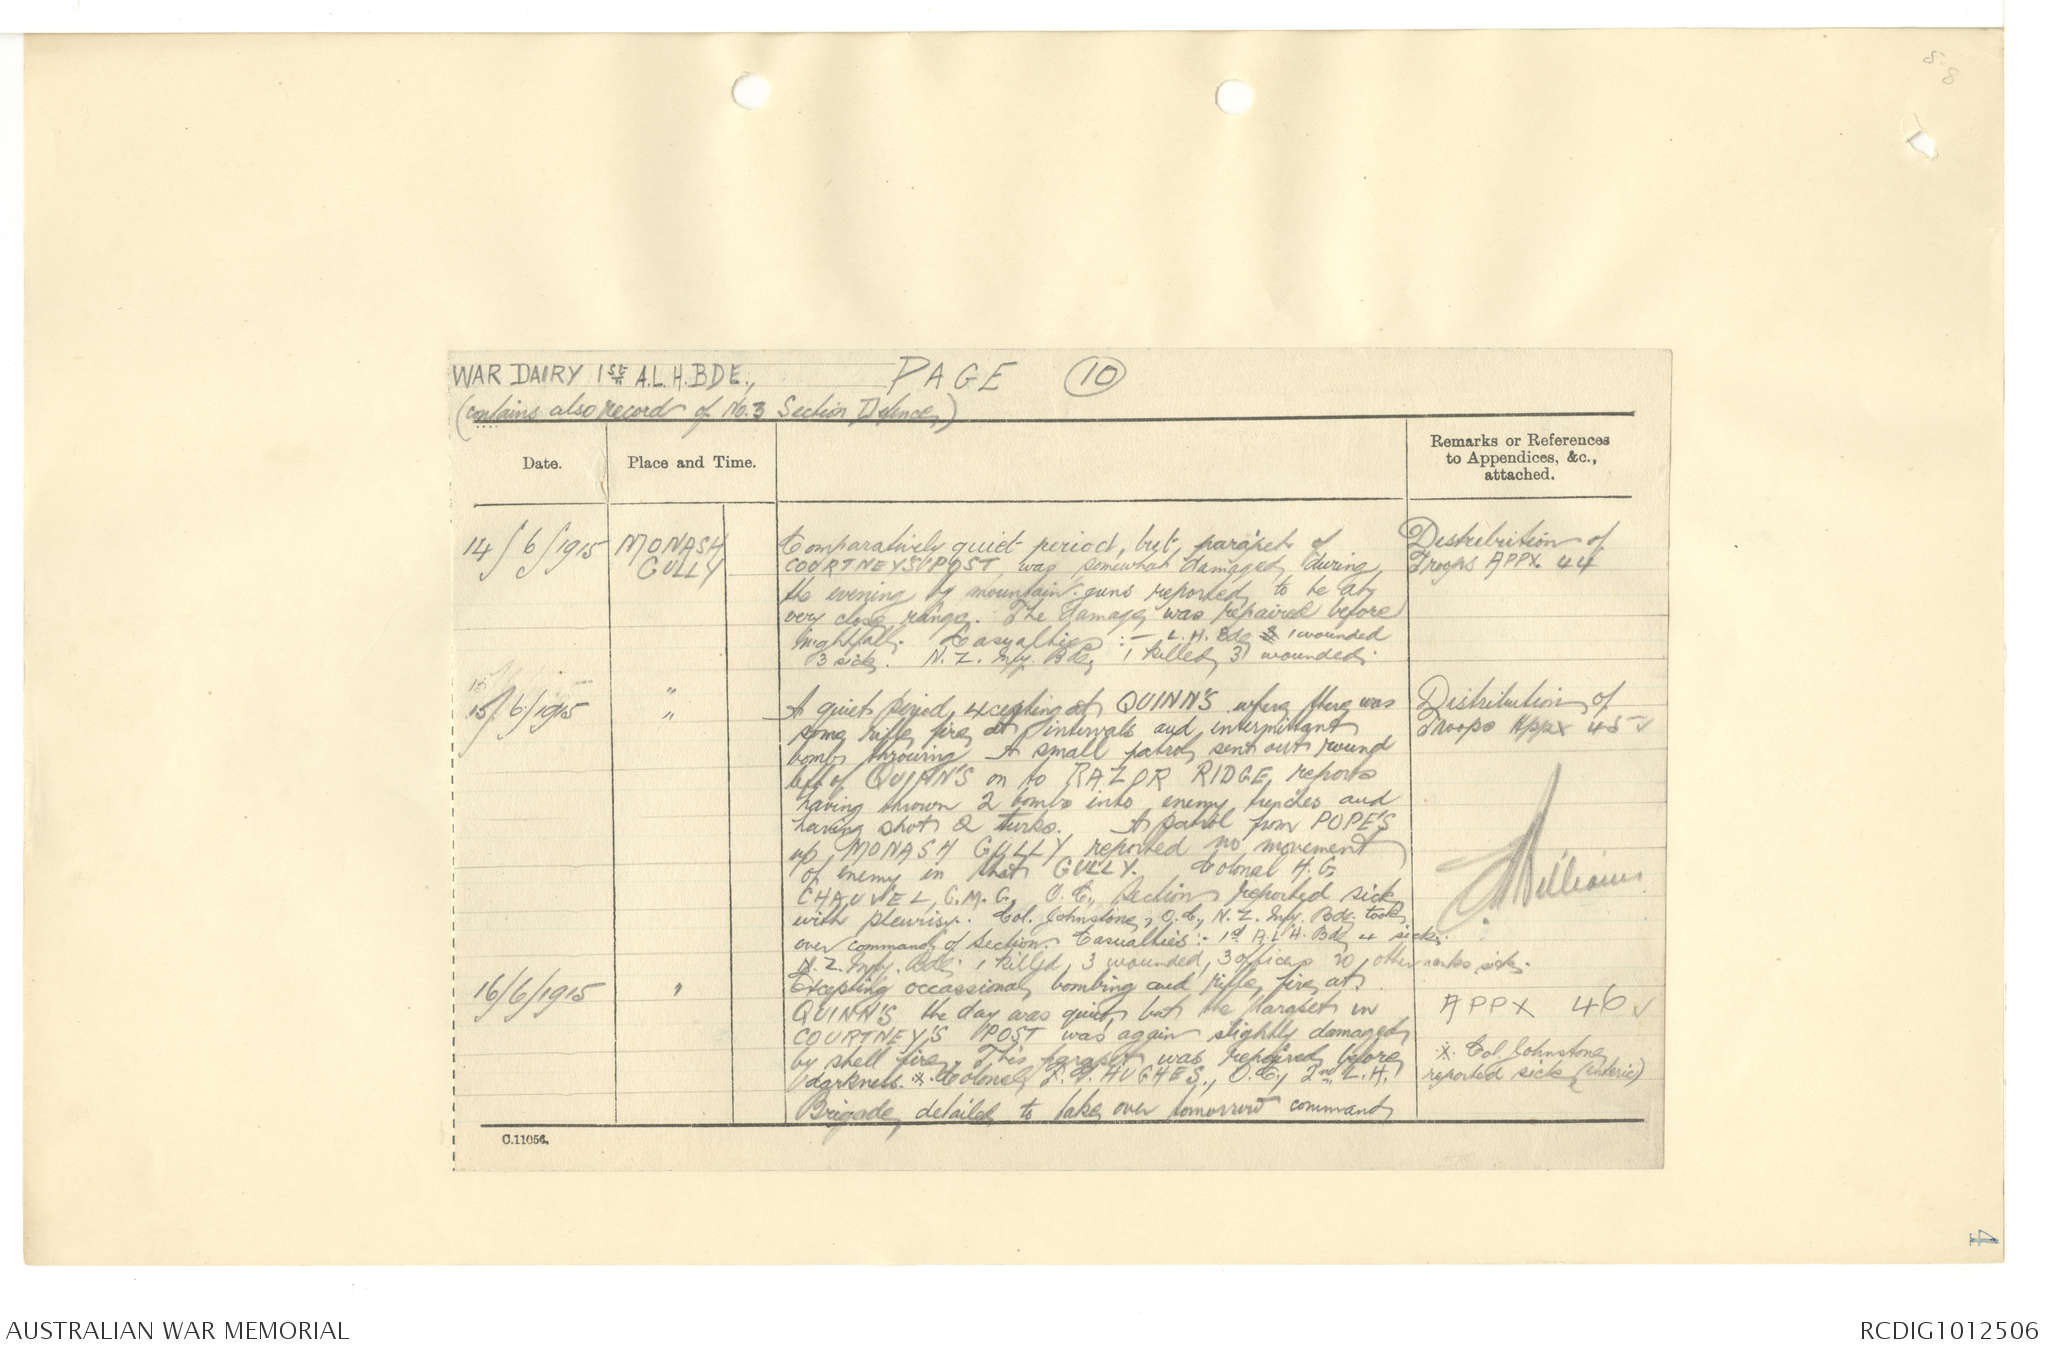 WAR DAIRY 1st A.L.H.BDE., PAGE 10
(contains also record of No.3 Section Defence)
Date.
Place and Time.
Remarks or References
to Appendices, &c.,
attached.
14/6/1915 MONASH
GULLY
Comparatively quiet period, but, parapet of
COURTNEYS POST was somewhat damaged during
the evening by mountain guns reported to be at
very close range. The damage was repaired before
nightfall. Casualties :- L.H. Bde 1 wounded
3 sick. N.Z. Infy. Bde, 1 killed, 3 wounded.
Distribution of
Troops APPX. 44
15/6/1915 "
"
A quiet period, excepting at QUINN'S where there was
some rifle fire at intervals and intermittant
bomb throwing. A small patrol, sent out round
left of QUINN'S on to RAZOR RIDGE, reports
having thrown 2 bombs into enemy trenches and
having shot 2 turks. A patrol from POPE'S
up MONASH GULLY reported no movement
of enemy in that GULLY. Colonel H.G.
CHAUVEL, C.M.G., O.C., Section reported sick
with pleurisy. Col. Johnstone, O.C., N.Z. Infy. Bde. took
over command of Section. Casualties :- 1st A.L.H. Bde 4 sick.
N.Z. Infy. Bde: 1 killed, 3 wounded, 3 officers 20 other ranks sick.
Distribution of
Troops Appx 45 ✓
Williams
16/6/1915 "
Excepting occassional bombing and rifle fire at
QUINN'S the day was quiet, but the parapet in
COURTNEY'S POST was again slightly damaged
by shell fire. This parapet was repaired before
darkness. ※ Colonel F.G. HUGHES., O.C., 2nd L.H.
Brigade, detailed to take over tomorrow command
APPX 46 ✓
※ Col. Johnstone
reported sick (enteric)
C.11056.
4
AUSTRALIAN WAR MEMORIAL
RCDIG1012506